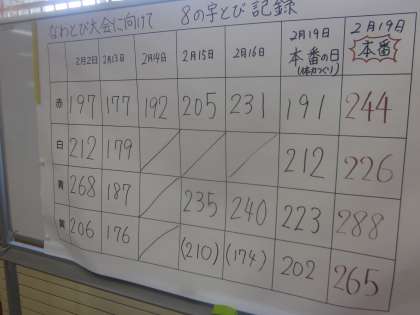 なわとび大会に向けて 8の字とび記録
2月2日 2月13日 2月14日 2月15日 2月16日 2月19日 本番の日 2月19日 本番
赤 197 177 192 205 231 191 244
白 212 179 212 226
青 268 187 235 240 223 288
黄 206 176 (210) (174) 202 265